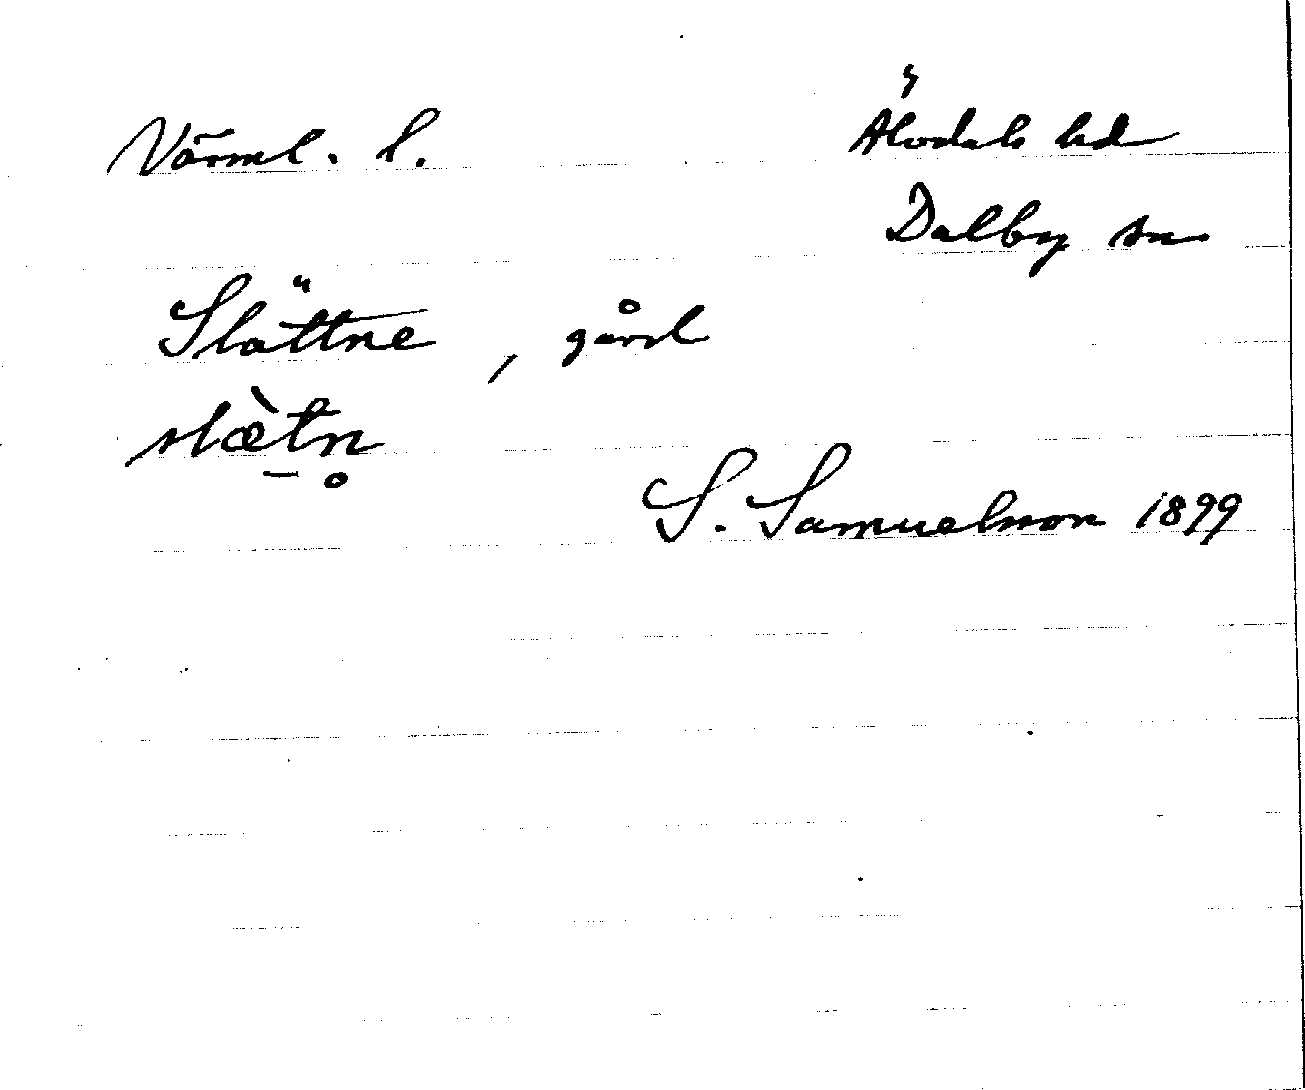 Värml. l.
Älvdals hd
Dalby sn
Slättne, gård
slæ̀tn̥
S. Samuelsson 1899